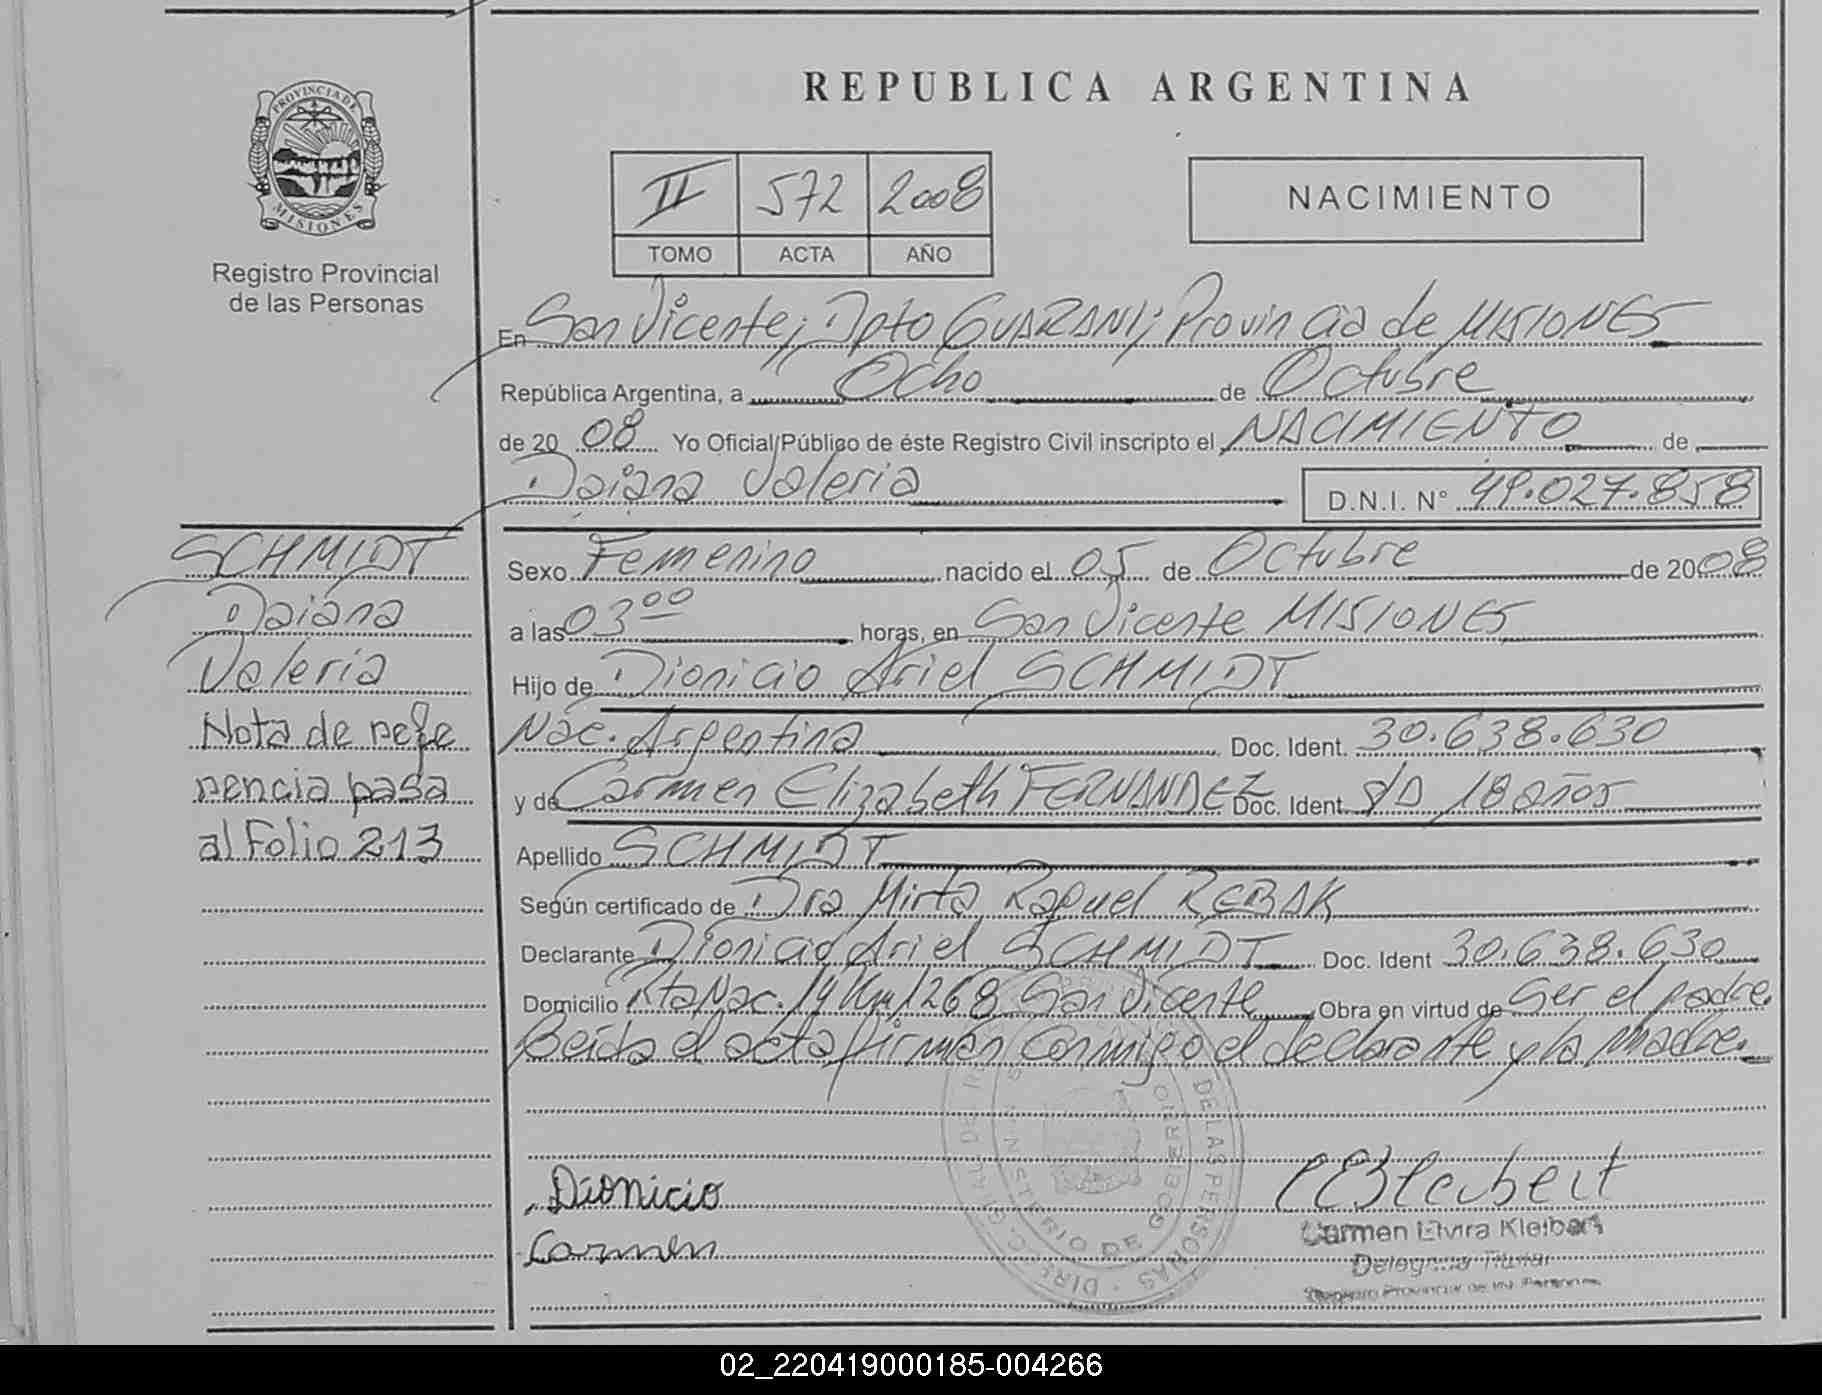 REPUBLICA ARGENTINA
PROVINCIA DE MISIONES
Registro Provincial
de las Personas
II 572 2008
TOMO ACTA AÑO
NACIMIENTO
En San Vicente; Dpto GUARANI; Provincia de MISIONES
República Argentina, a Ocho de Octubre
de 2008 Yo Oficial Público de éste Registro Civil inscripto el NACIMIENTO de
Daiana Valeria D.N.I. N° 49.027.858
SCHMIDT
Daiana
Valeria
Nota de refe
rencia pasa
al Folio 213
Sexo Femenino nacido el 05 de Octubre de 2008
a las 03 00 horas, en San Vicente MISIONES
Hijo de Dionicio Ariel SCHMIDT
Nac. Argentina Doc. Ident. 30.638.630
y de Carmen Elizabeth FERNANDEZ Doc. Ident. S/D 18 años
Apellido SCHMIDT
Según certificado de Dra Mirta Raquel REBAK
Declarante Dionicio Ariel SCHMIDT Doc. Ident 30.638.630
Domicilio Rta Nac. 14 Km 1268 San Vicente Obra en virtud de Ser el padre.
Leída el acta firman conmigo el declarante y la madre.
Dionicio
Carmen
Carmen Elvira Kleibert
Delegada Titular
Registro Provincial de las Personas
MINISTERIO DE GOBIERNO
DE LAS PERSONAS
02_220419000185-004266